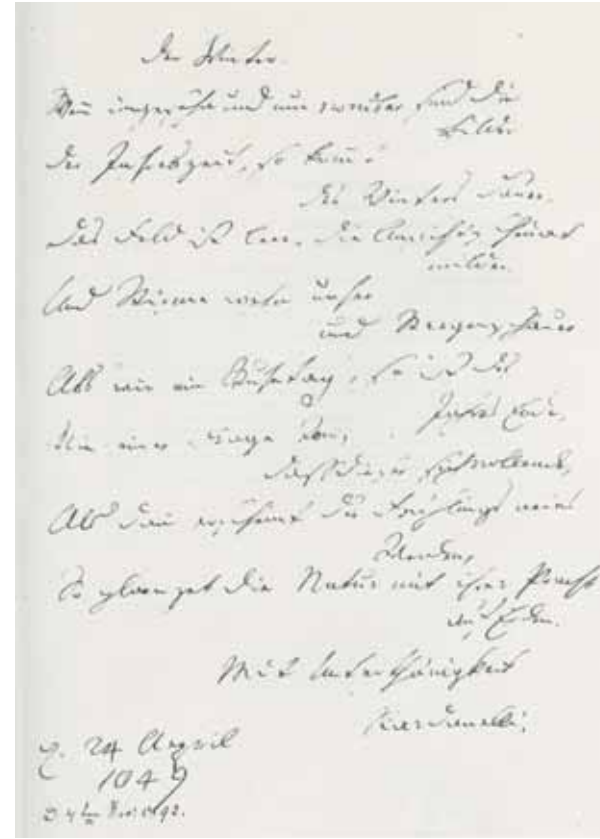 Der Winter.
Wenn ungesehn und nun vorüber sind die
Bilder
Der Jahreszeit, so kommt
des Winters Dauer,
Das Feld ist leer, die Ansicht scheinet
milder,
Und Stürme wehn umher
und Regenschauer
Als wie ein Ruhetag, so ist des
Jahres Ende,
Wie einer Frage Ton,
daß dieser sich vollende,
Als dann erscheint des Frühlings neues
Werden,
So glänzet die Natur mit ihrer Pracht
auf Erden.
Mit Unterthänigkeit
Scardanelli.
d. 24 April
1849